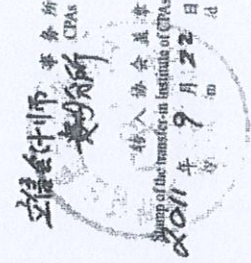 立信会计师 事务所
分所 CPAs
转入协会盖章
Stamp of the transfer-in Institute of CPAs
2011 年 9 月 22 日
/y /m /d